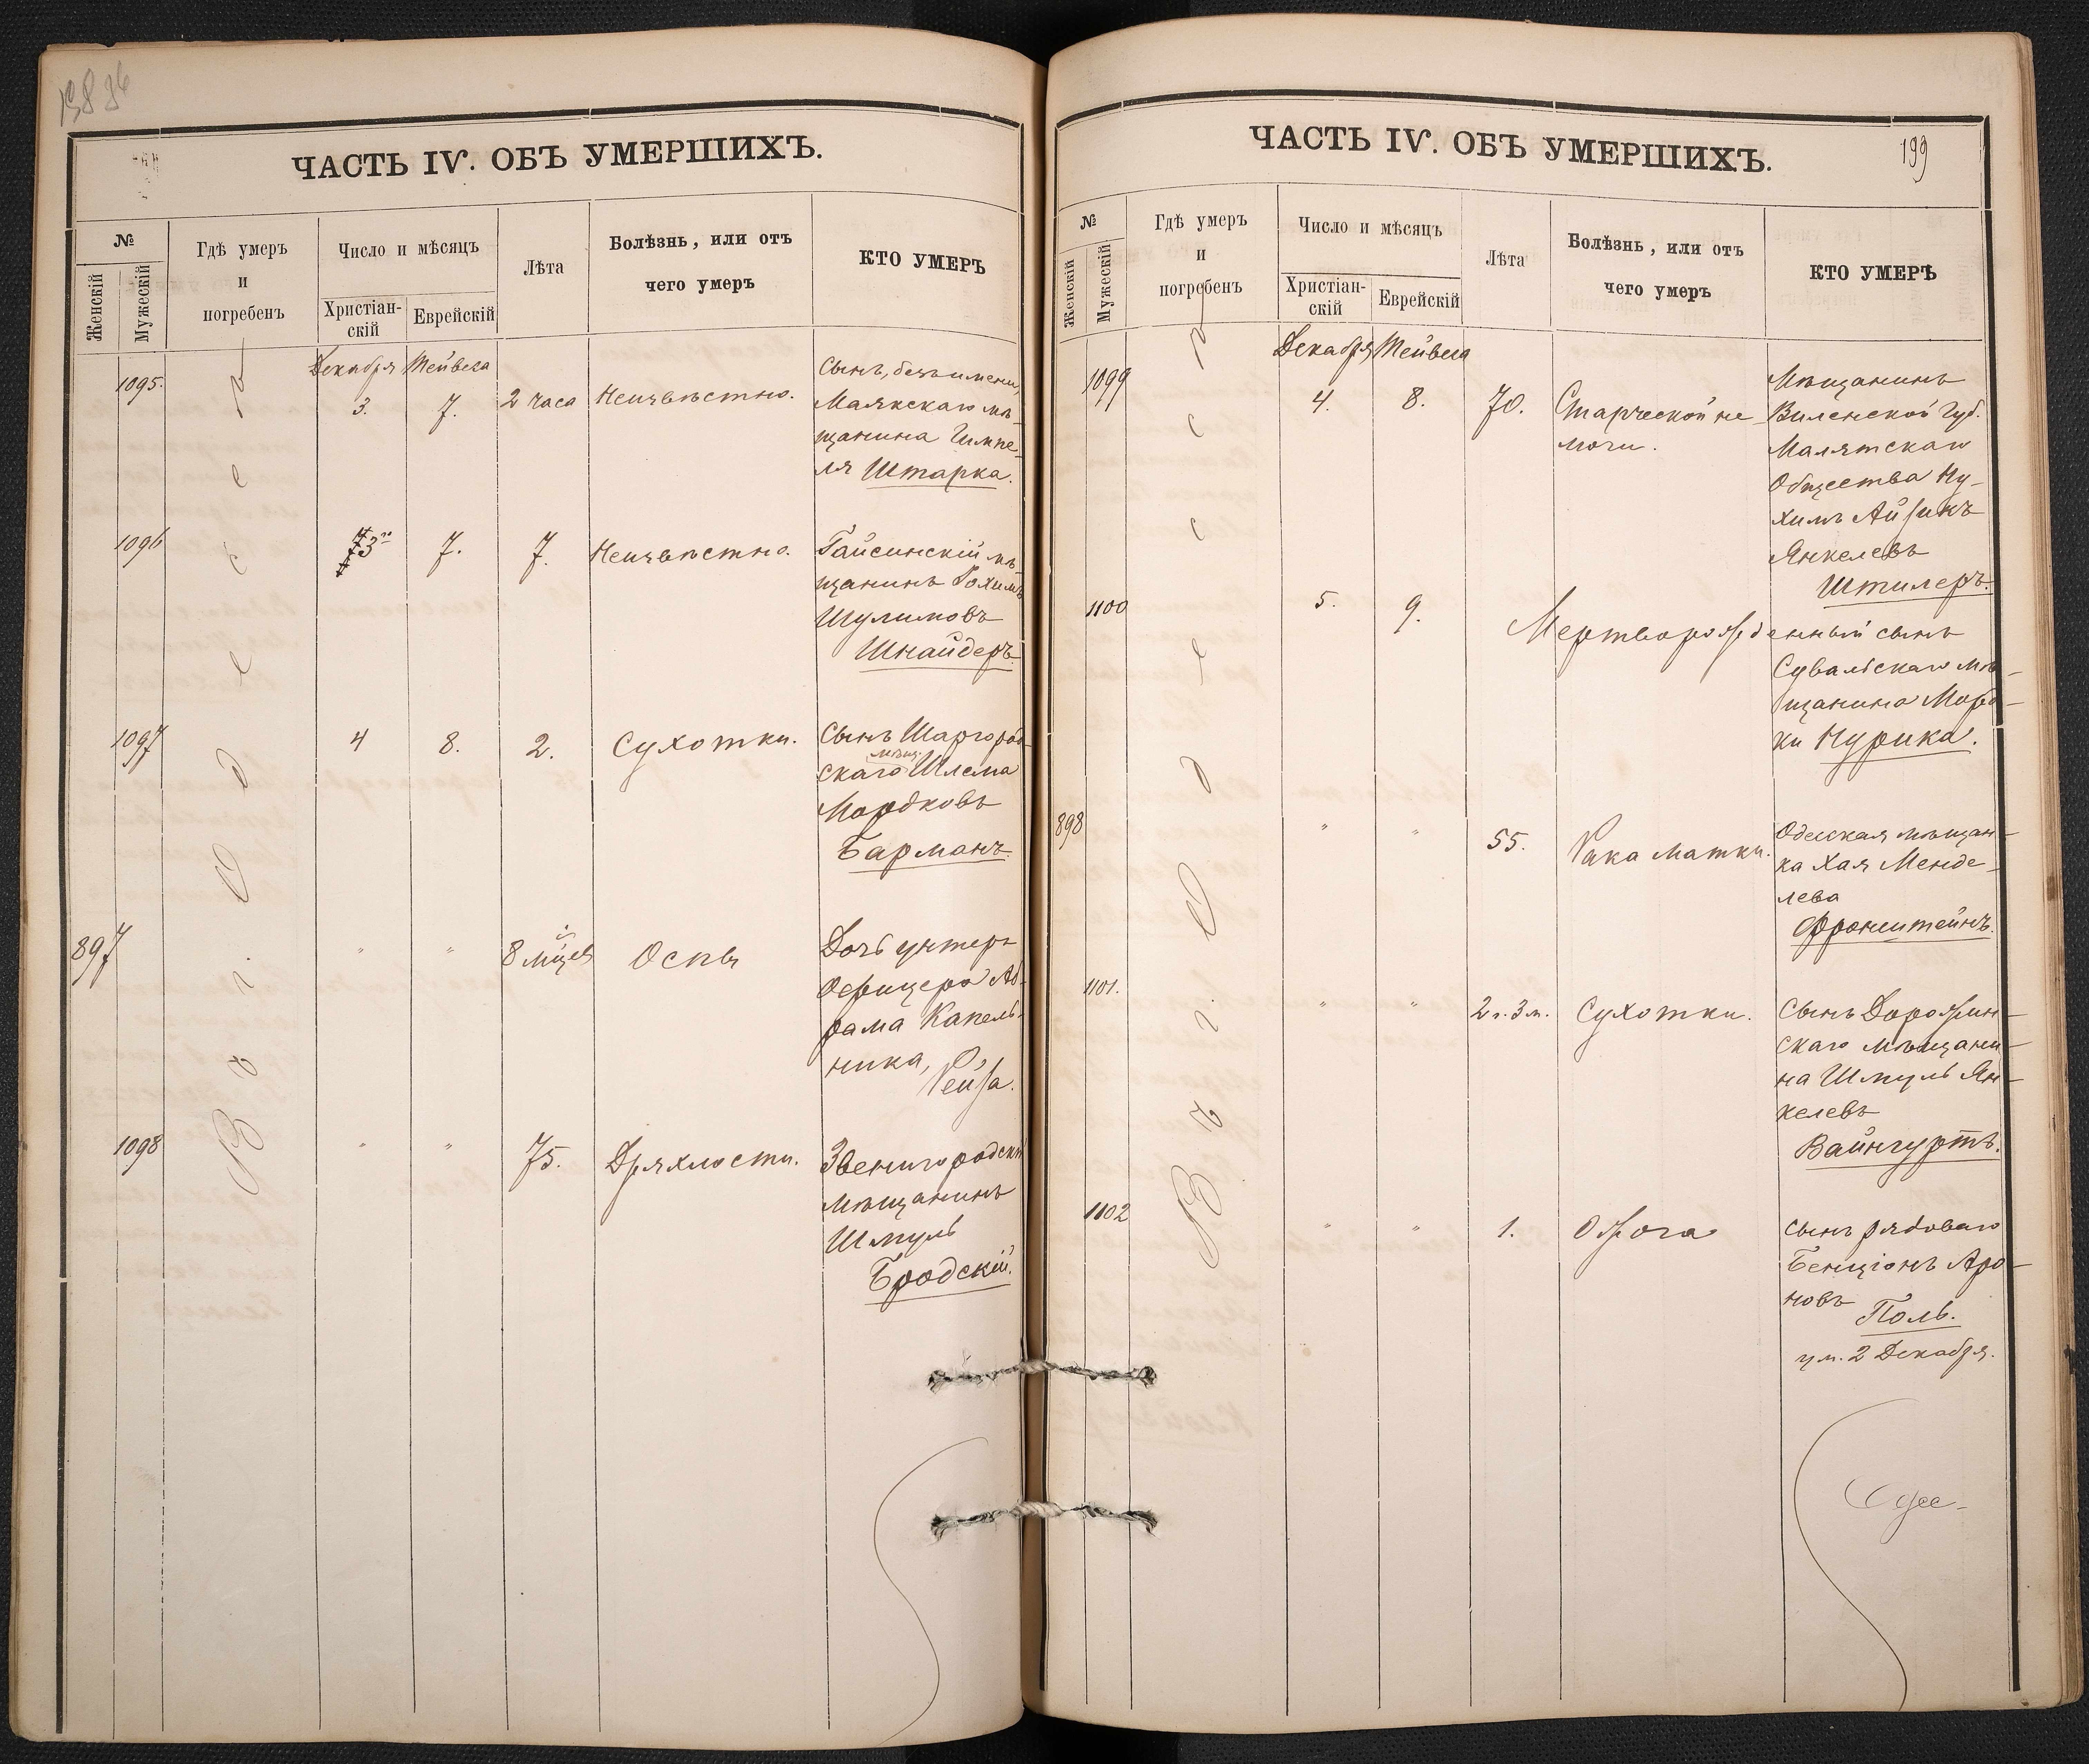 ЧАСТЬ IV. ОБЪ УМЕРШИХЪ.
№
Женскій
Мужескій
Гдѣ умеръ
и
погребенъ
Число и мѣсяцъ
Христіан-
скій
Еврейскій
Лѣта
Болѣзнь, или отъ
чего умеръ
КТО УМЕРЪ
Въ г. Одессѣ
Декабря Тейвеса
1095. 3. 7. 2 часа Неизвѣстно.
Сынъ, безъ имени,
Маякскаго мѣ-
щанина Гимпе-
ля Штарка.
1096 3го 7. 7. Неизвѣстно.
Гайсинскій мѣ-
щанинъ Рохимъ
Шулимовъ
Шнайдеръ.
1097 4 8. 2. Сухотки.
Сынъ Шаргород-
мѣщ.
скаго Шлема
Мордковъ
Барманъ.
897 " " 8 мцев Оспы
Дочь унтеръ
Офицера Аб-
рама Капель-
ника, Рейза.
1098 " " 75. Дряхлости.
Звенигородскій
мѣщанинъ
Шмуль
Бродскій.
ЧАСТЬ IV. ОБЪ УМЕРШИХЪ.
199
№
Женскій
Мужескій
Гдѣ умеръ
и
погребенъ
Число и мѣсяцъ
Христіан-
скій
Еврейскій
Лѣта
Болѣзнь, или отъ
чего умеръ
КТО УМЕРЪ
Въ г. Одессѣ
Декабря Тейвеса
1099 4. 8. 70. Старческой не-
мочи.
Мѣщанинъ
Виленской Губ.
Малятскаго
Общества Ну-
химъ Айзикъ
Янкелевъ
Штилеръ.
1100 5. 9. Мертворожденный сынъ
Сувальскаго мѣ-
щанина Морд-
ки Нурика.
898 " " 55. Рака матки.
Одесская мѣщан-
ка Хая Менде-
лева
Фронштейнъ.
1101. " " 2 г. 3 м. Сухотки.
Сынъ Дорожин-
скаго мѣщани-
на Шмуль Ян-
келевъ
Вайнгуртъ.
1102 " " 1. Ожога
Сынъ рядоваго
Бенціонъ Аро-
новъ
Поль.
ум. 2 Декабря.
Одес-